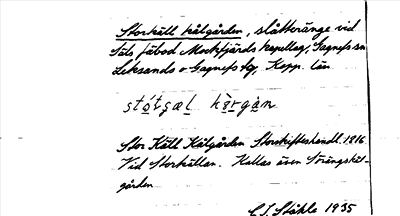 Storkäll kålgården, slåtteränge vid
Säts fäbod Mockfjärds kapellag, Gagnefs sn
Leksands o Gagnefs tg, Kopp. län
stótsæl kə̀rgàn
Stor Käll Kålgården Storskifteshandl. 1816
Vid Storkällan. Kallas även Storängskål-
gården
C.I. Ståhle 1935